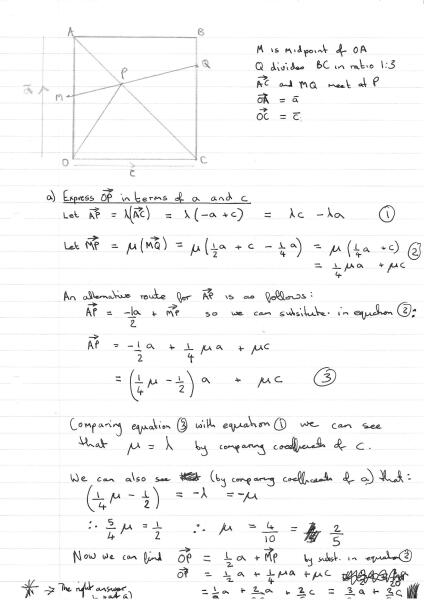 A
B
M is midpoint of OA
Q divides BC in ratio 1:3
AC and MQ meet at P
OA = a
OC = c
Q
P
M
a
O
C
c
a) Express OP in terms of a and c
Let AP = λ(AC) = λ(-a + c) = λc - λa ①
Let MP = μ(MQ) = μ(1/2 a + c - 1/4 a) = μ(1/4 a + c) ②
= 1/4 μa + μc
An alternative route for AP is as follows:
AP = -1/2 a + MP so we can subsitute in equation ②:
AP = -1/2 a + 1/4 μa + μc
= (1/4 μ - 1/2) a + μc ③
Comparing equation ③ with equation ① we can see
that μ = λ by comparing coefficients of c.
We can also see (by comparing coefficients of a) that:
(1/4 μ - 1/2) = -λ = -μ
∴ 5/4 μ = 1/2 ∴ μ = 4/10 = 2/5
Now we can find OP = 1/2 a + MP by subst. in equation ②
OP = 1/2 a + 1/4 μa + μc
The right answer
= 1/2 a + 2/20 a + 2/5 c = 3/5 a + 2/5 c